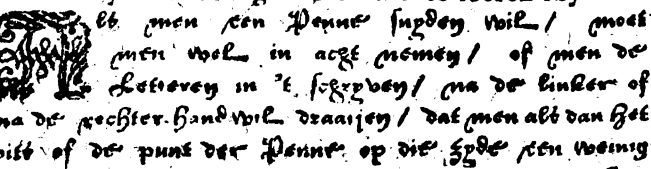 Als men een Penne snyden wil / moet
men wel in acht nemen / of men de
Letteren in 't schryven / na de linker of
na de rechter-hand wil draaijen / dat men als dan het
bits of de punt der Penne op die zyde een weinig